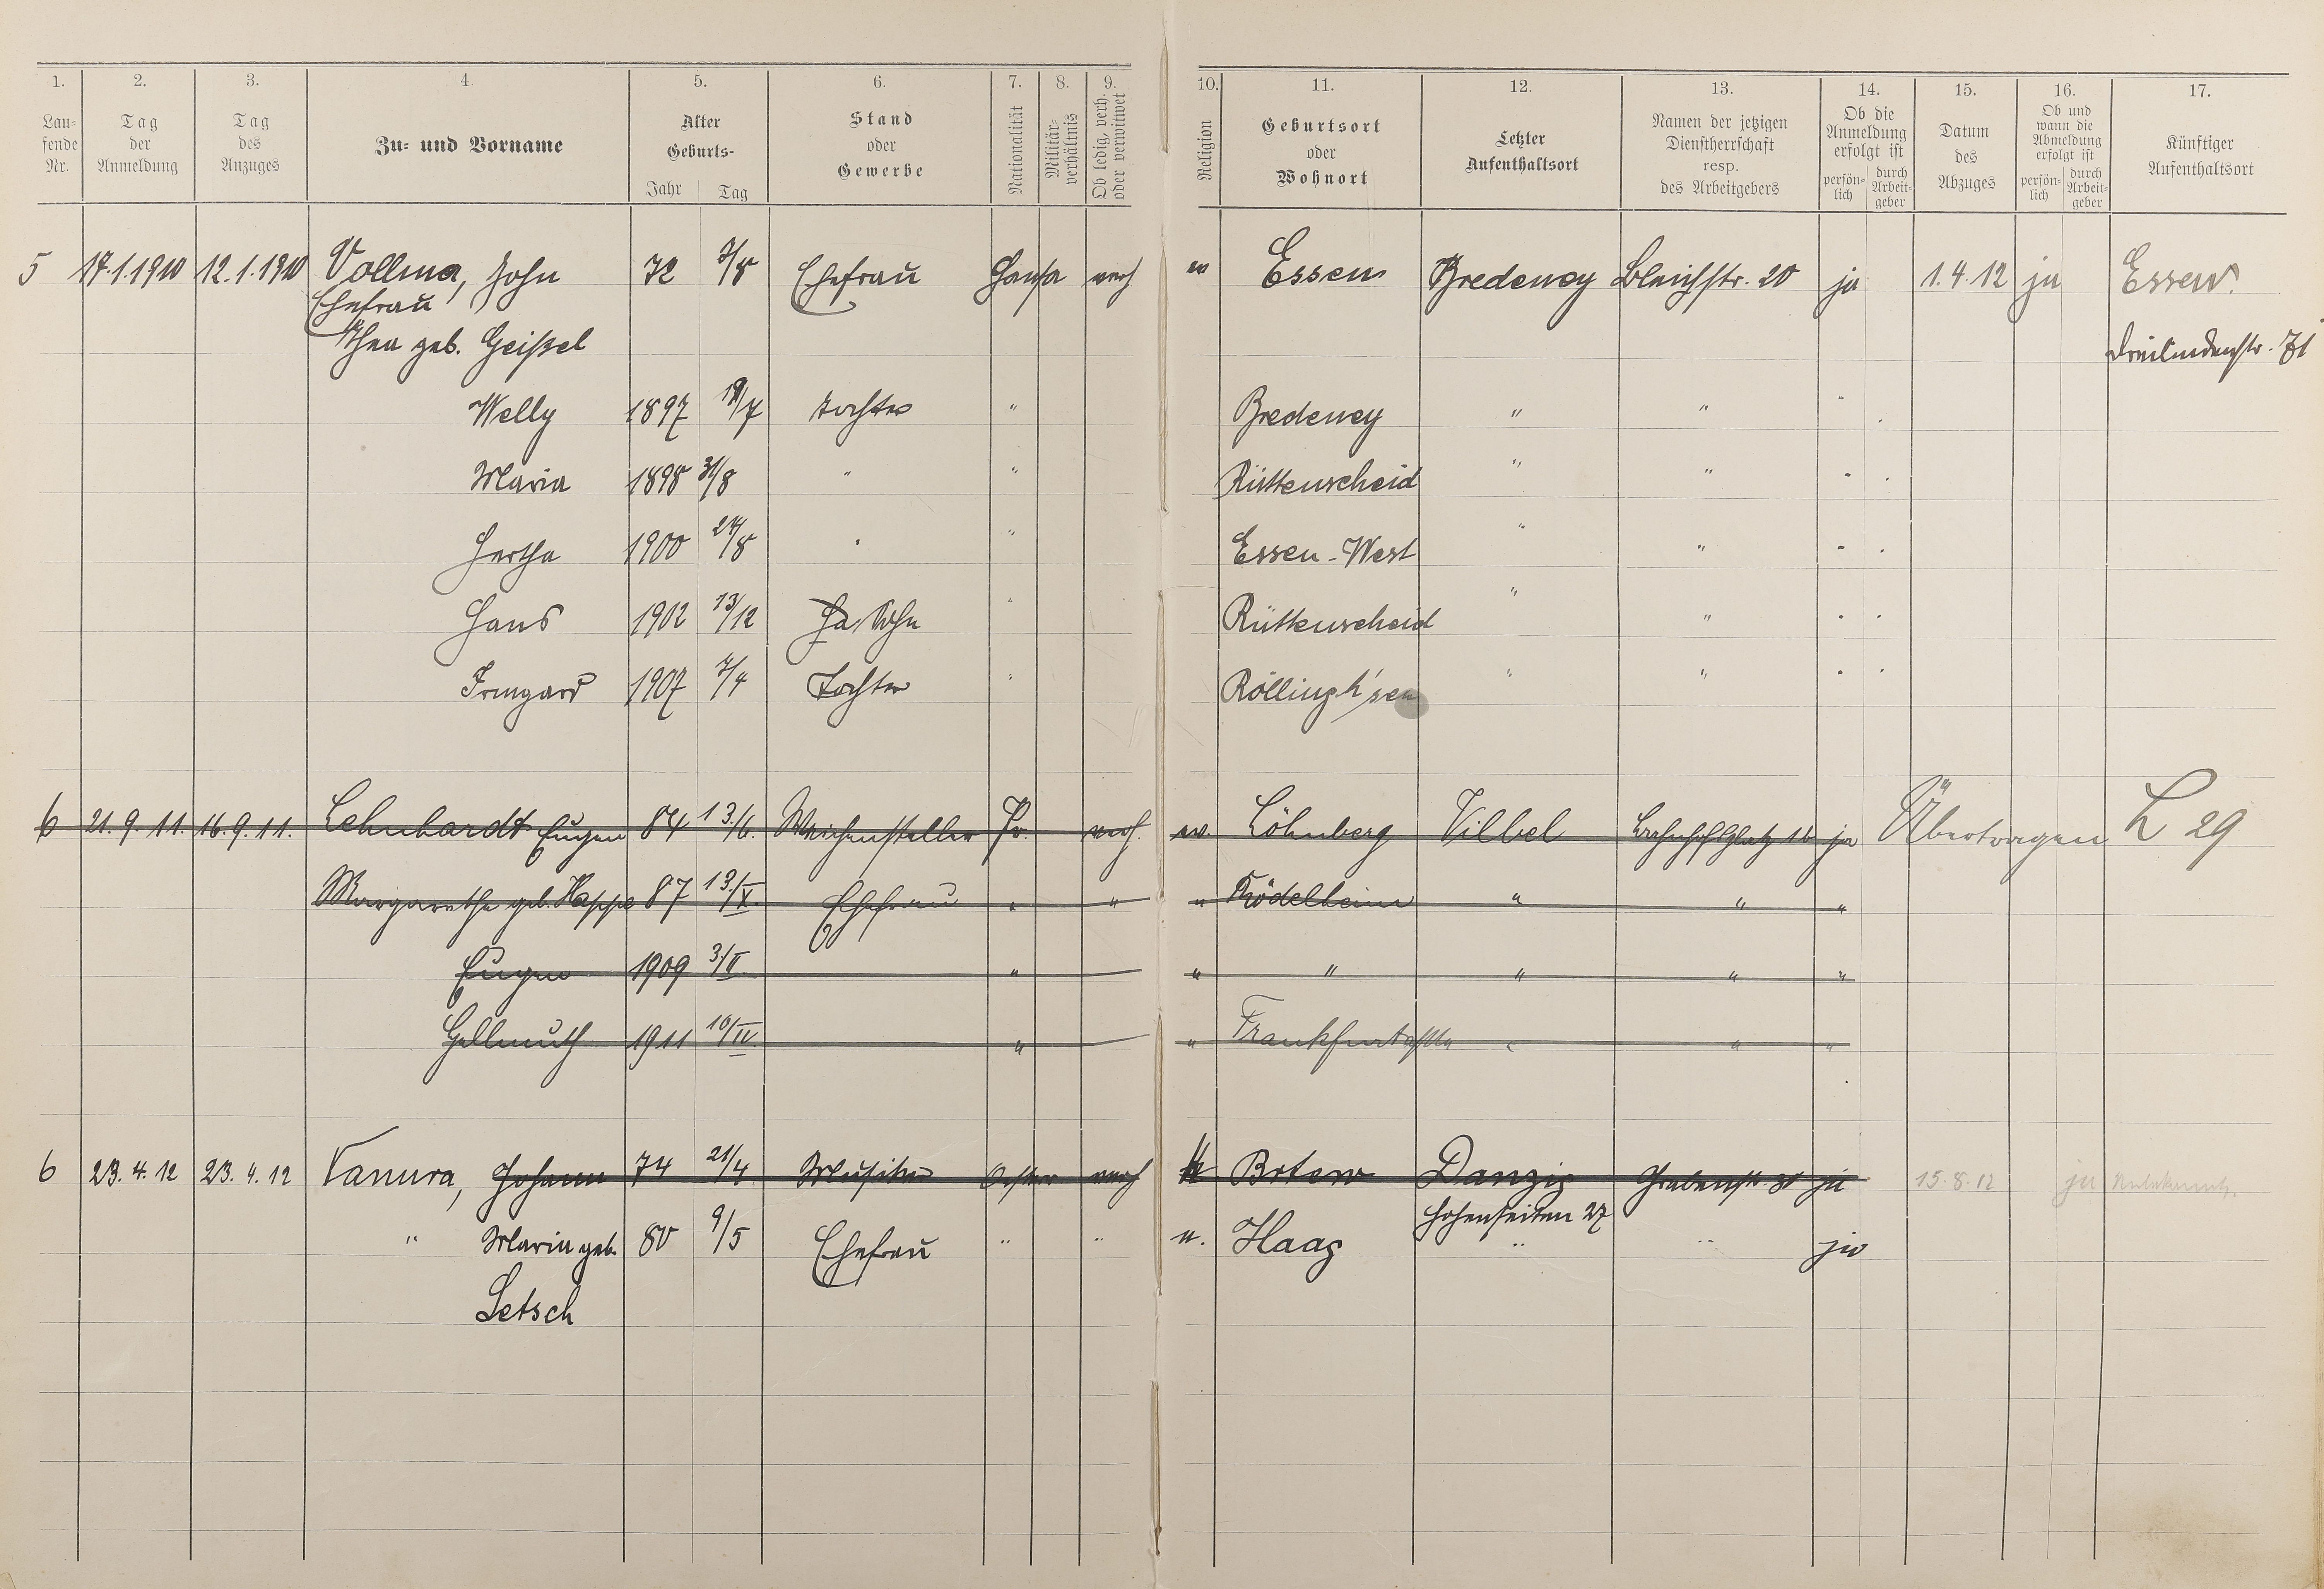 1. 2. 3. 4. 5. 6. 7. 8. 9. 10. 11. 12. 13. 14. 15. 16. 17.
Lau-
fende
Nr.
Tag
der
Anmeldung
Tag
des
Anzuges
Zu- und Vorname
Alter
Geburts-
Jahr Tag
Stand
oder
Gewerbe
Nationalität
Militär-
verhältnis
Ob ledig, verh.
oder verwitwet
Religion
Geburtsort
oder
Wohnort
Letzter
Aufenthaltsort
Namen der jetzigen
Dienstherrschaft
resp.
des Arbeitgebers
Ob die
Anmeldung
erfolgt ist
persön-
lich
durch
Arbeit-
geber
Datum
des
Abzuges
Ob und
wann die
Abmeldung
erfolgt ist
persön-
lich
durch
Arbeit-
geber
Künftiger
Aufenthaltsort
5 17.1.1910 12.1.1910 Vollmer, John 72 7/5 Ehefrau verh Essen Bredeney Bleichstr. 20 ja 1.4.12 ja Essen
Ehefrau
Thea geb. Geißel Dreilindenstr. 71
Welly 1897 19/7 Tochter " Bredeney " " "
Maria 1898 31/8 " " Rüttenscheid " " "
Hertha 1900 24/5 " " Essen-West " " "
Hans 1902 13/12 Sohn " Rüttenscheid " " "
Irmgard 1907 7/4 Tochter " Röllingh'sen " " "
6 21.9.11. 16.9.11. Lehnhardt Eugen 84 13./6. Weichensteller Pr. verh. ev. Löhnberg Vilbel Bahnhofsplatz ja Übertragen L 29
Margarethe geb. Happe 87 13./X. Ehefrau " " " Rödelheim " " "
Eugen 1909 3/II " " " " " "
Hellmuth 1911 10/IV. " " Frankfurt " " "
6 23.4.12 23.4.12 Vanura, Johann 74 21/4 Musiker Oester verh k Brtew Danzig Grabenstr. 31 ja 15.8.12 ja Unbekannt.
Hohenseiten 27
" Maria geb. 80 9/5 Ehefrau " " " Haag " " ja
Letsch